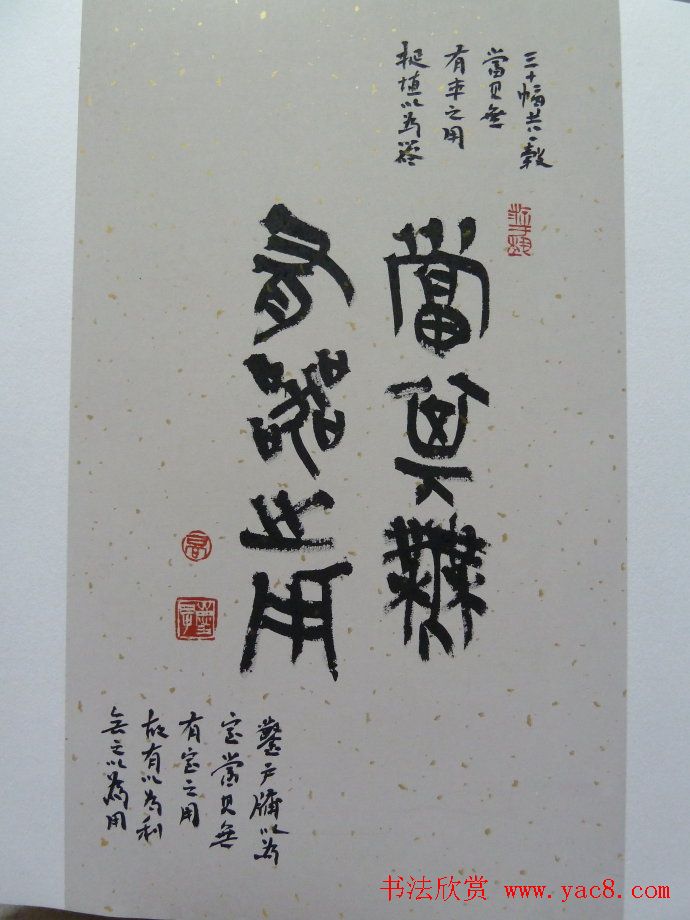 三十幅共一轂
當其無
有車之用
挻埴以為器
當其無
有器之用
鑿戶牖以為
室當其無
有室之用
故有以為利
無之以為用
书法欣赏 www.yac8.com